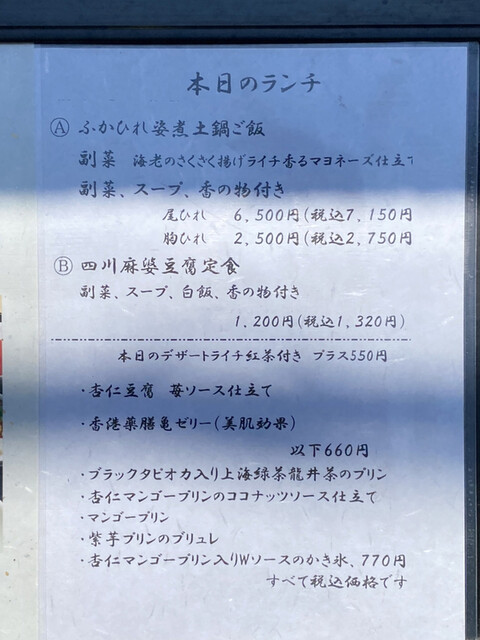 本日のランチ
Ⓐ ふかひれ姿煮土鍋ご飯
副菜 海老のさくさく揚げライチ香るマヨネーズ仕立て
副菜、スープ、香の物付き
尾ひれ 6,500円(税込7,150円
胸ひれ 2,500円(税込2,750円
Ⓑ 四川麻婆豆腐定食
副菜、スープ、白飯、香の物付き
1,200円(税込1,320円)
本日のデザートライチ紅茶付き プラス550円
・杏仁豆腐 苺ソース仕立て
・香港薬膳亀ゼリー(美肌効果)
以下660円
・ブラックタピオカ入り上海緑茶龍井茶のプリン
・杏仁マンゴープリンのココナッツソース仕立て
・マンゴープリン
・紫芋プリンのブリュレ
・杏仁マンゴープリン入りWソースのかき氷、770円
すべて税込価格です